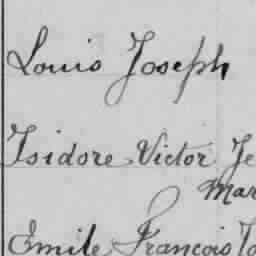 Louis Joseph
Isidore Victor Je
Mar
Emile François Jo